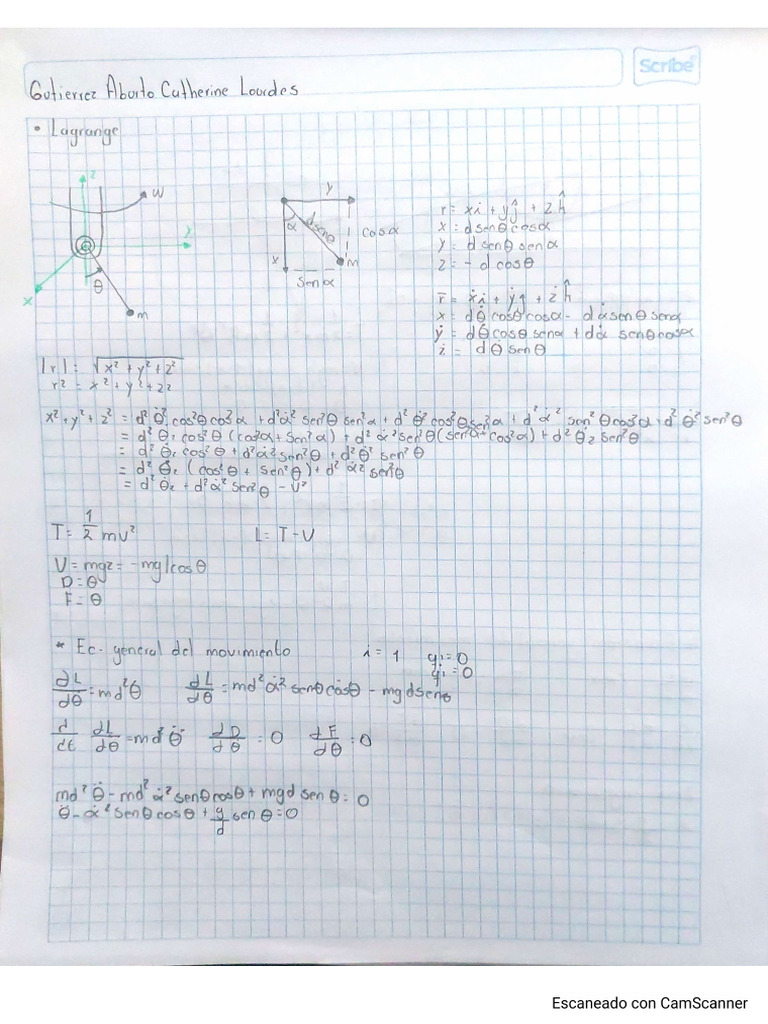 Scribe
Gutierrez Aburto Catherine Lourdes
• Lagrange
z
w
y
x
θ
m
y
α
d senθ
cosα
x
m
senα
r = xi + yĵ + z k̂
x: d senθ cosα
y: d senθ senα
z = - d cosθ
r̄ = ẋi + ẏj + ż k̂
x = dθ̇ cosθ cosα - dα̇ senθ senα
ẏ = dθ̇ cosθ senα + dα̇ senθ cosα
ż = dθ̇ senθ
|r| = √x² + y² + z²
r² = x² + y² + z²
x² + y² + z² = d² θ̇² cos²θ cos²α + d²α̇² sen²θ sen²α + d² θ̇² cos²θ sen²α + d² α̇² sen²θ cos²α + d² θ̇² sen²θ
= d² θ̇² cos²θ (cos²α + sen²α) + d² α̇² sen²θ (sen²α + cos²α) + d² θ̇² sen²θ
= d² θ̇² cos²θ + d²α̇² sen²θ + d² θ̇² sen²θ
= d² θ̇² (cos²θ + sen²θ) + d² α̇² sen²θ
= d² θ̇² + d² α̇² sen²θ - v²
T = 1/2 mv² L = T - U
V = mgz = -mglcosθ
D = θ
F = θ
* Ec. general del movimiento i = 1 qi = 0
qi = 0
∂L/dθ̇ = md²θ̇ dL/dθ = md² α̇² senθ cosθ - mgd senθ
d/dt dL/dθ̇ = md² θ̈ dD/dθ̇ : 0 dF/dθ̇ : 0
md² θ̈ - md² α̇² senθ cosθ + mgd senθ = 0
θ̈ - α̇² senθ cosθ + g/d senθ = 0
Escaneado con CamScanner